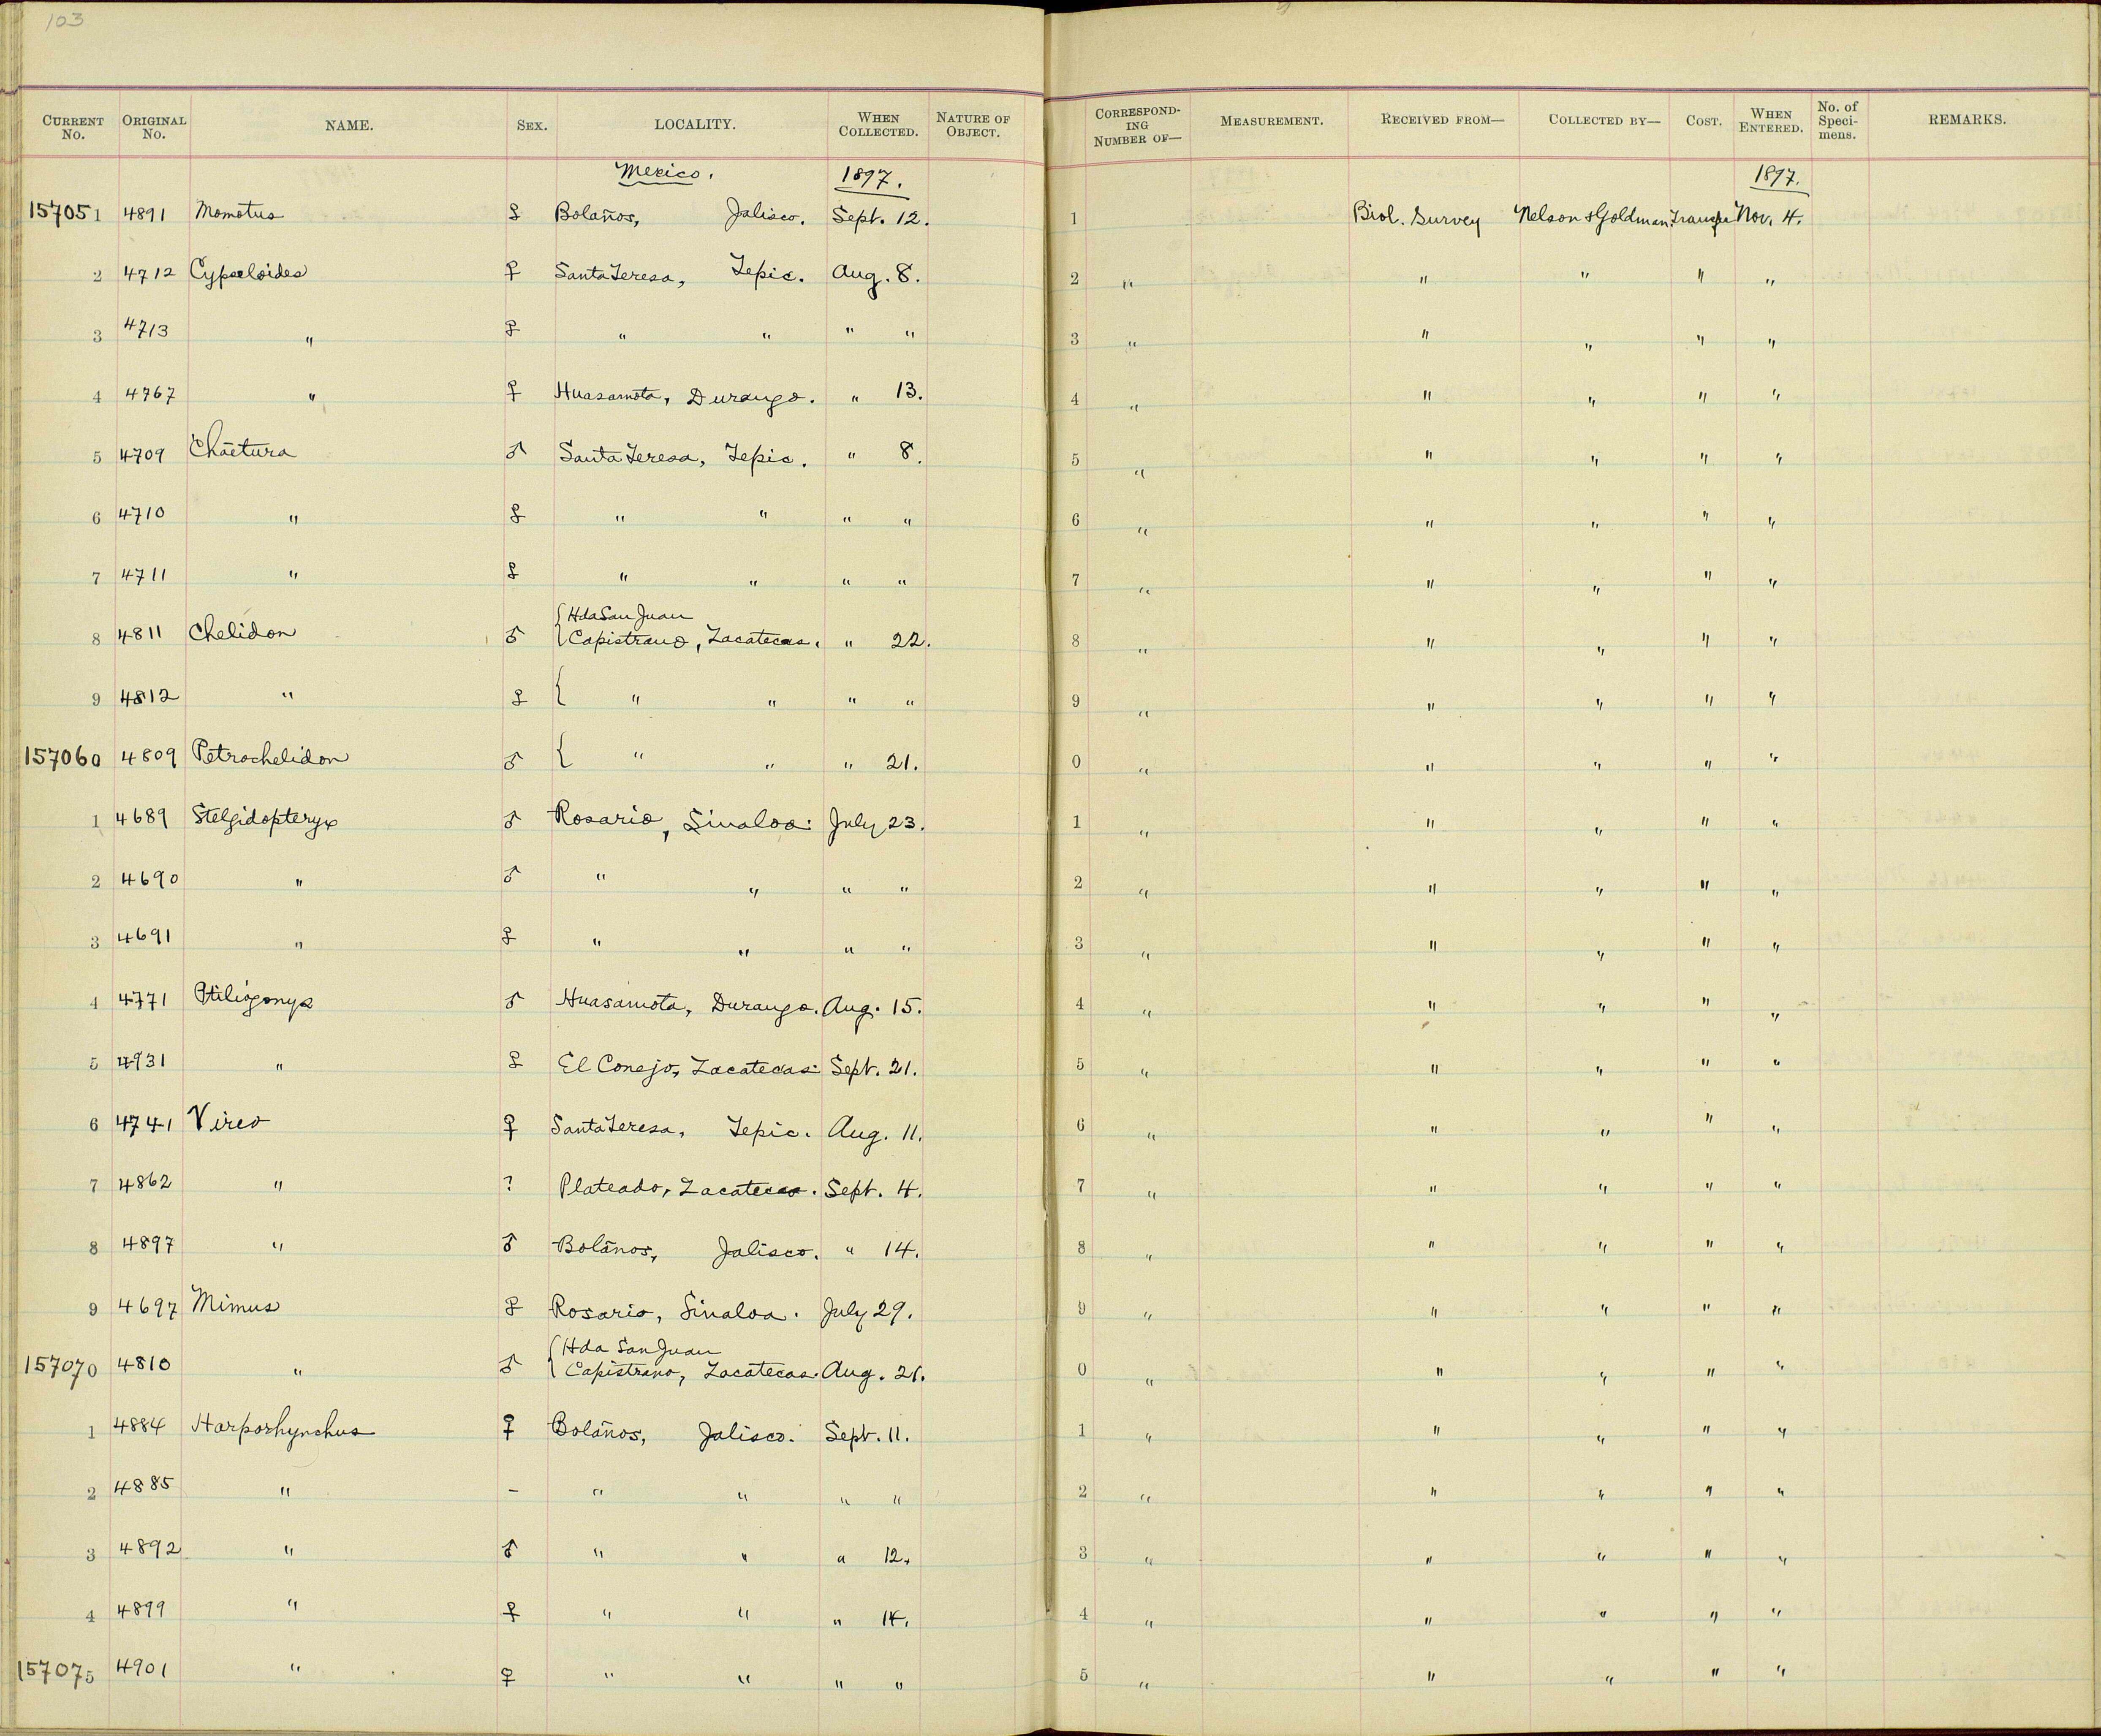 103
CURRENT No. ORIGINAL No. NAME. SEX. LOCALITY. WHEN COLLECTED. NATURE OF OBJECT. CORRESPONDING NUMBER OF— MEASUREMENT. RECEIVED FROM— COLLECTED BY— COST. WHEN ENTERED. No. of Specimens. REMARKS.
Mexico. 1897. 1897.
157051 4891 Momotus Bolaños, Jalisco. Sept. 12. 1 Biol. Survey Nelson & Goldman. Transfer Nov. 4.
2 4712 Cypseloides ♀ Santa Teresa, Tepic. Aug. 8. 2 " " " " "
3 4713 " " " " " 3 " " " " "
4 4767 " ♀ Huasamota, Durango. " 13. 4 " " " " "
5 4709 Chaetura ♂ Santa Teresa, Tepic. " 8. 5 " " " " "
6 4710 " " " " " 6 " " " " "
7 4711 " " " " " 7 " " " " "
8 4811 Chelidon ♂ { Hda San Juan
Capistrano, Zacatecas. " 22. 8 " " " " "
9 4812 " { " " " " 9 " " " " "
157060 4809 Petrochelidon ♂ { " " " 21. 0 " " " " "
1 4689 Stelgidopteryx ♂ Rosario, Sinaloa. July 23. 1 " " " " "
2 4690 " ♂ " " " " 2 " " " " "
3 4691 " " " " " 3 " " " " "
4 4771 Ptiliogonys ♂ Huasamota, Durango. Aug. 15. 4 " " " " "
5 4931 " El Conejo, Zacatecas. Sept. 21. 5 " " " " "
6 4741 Vireo ♀ Santa Teresa, Tepic. Aug. 11. 6 " " " " "
7 4862 " ? Plateado, Zacatecas. Sept. 4. 7 " " " " "
8 4897 " ♂ Bolaños, Jalisco. " 14. 8 " " " " "
9 4697 Mimus Rosario, Sinaloa. July 29. 9 " " " " "
157070 4810 " ♂ { Hda San Juan
Capistrano, Zacatecas. Aug. 21. 0 " " " " "
1 4884 Harporhynchus ♀ Bolaños, Jalisco. Sept. 11. 1 " " " " "
2 4885 " - " " " " 2 " " " " "
3 4892 " ♂ " " " 12. 3 " " " " "
4 4899 " ♀ " " " 14. 4 " " " " "
157075 4901 " ♀ " " " " 5 " " " " "